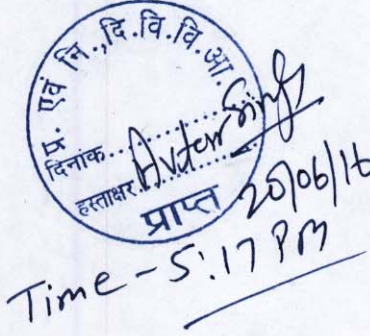 प्र. एवं नि.,दि.वि.वि.आ.
दिनांक........
हस्ताक्षर Avtar Singh
प्राप्त 20/06/16
Time - 5:17 PM